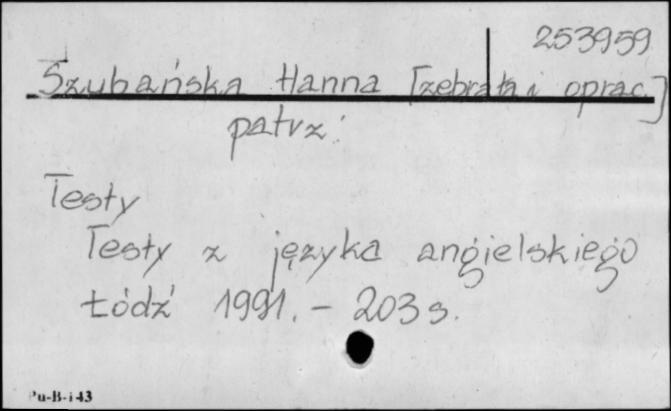 253959
Szubańska Hanna [zebrała i oprac.]
patrz:
Testy
Testy z języka angielskiego
Łódź 1991. - 203 s.
Pu-B-i 43